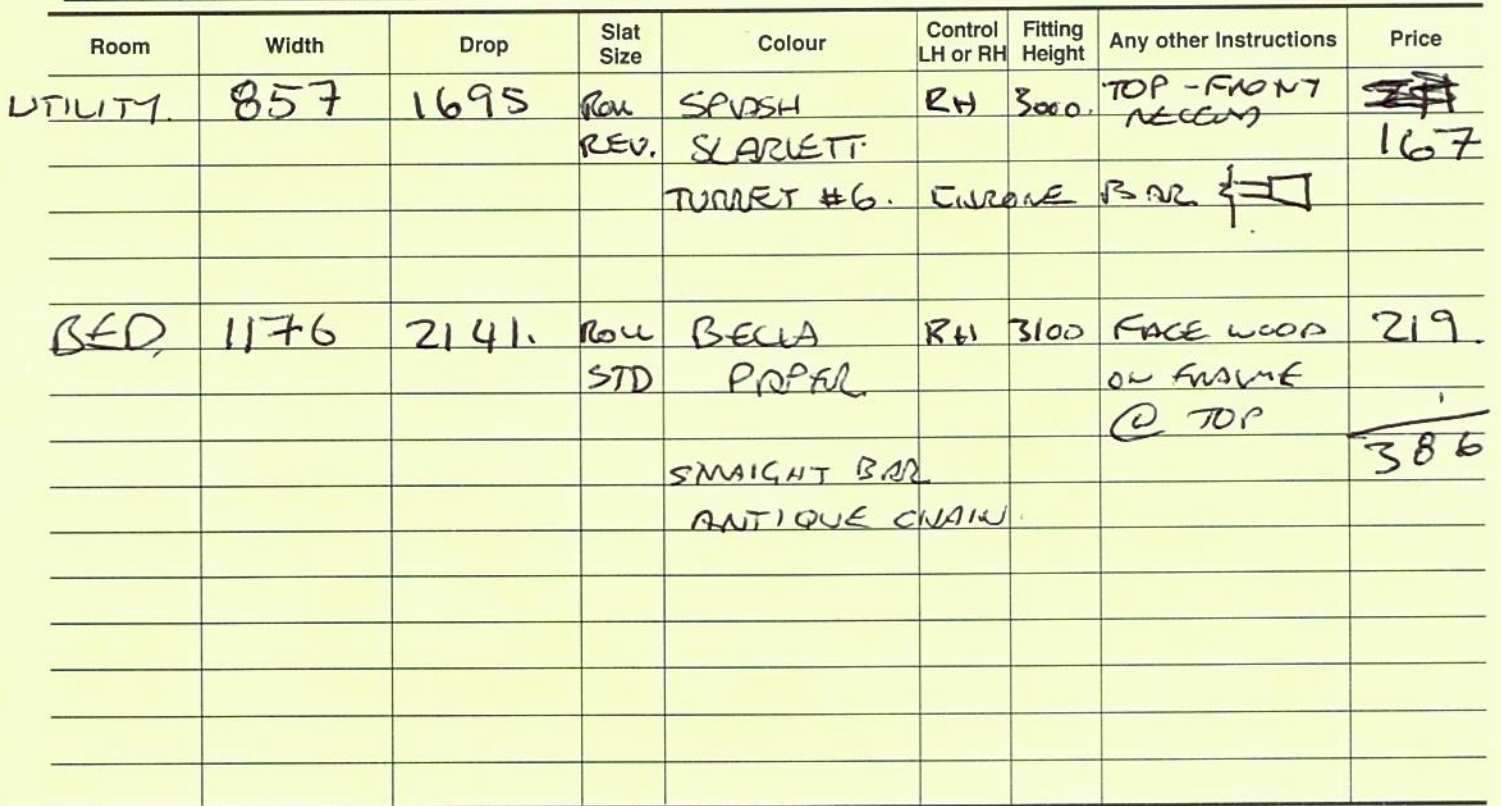 Room Width Drop Slat Size Colour Control LH or RH Fitting Height Any other Instructions Price
UTILITY. 857 1695 ROLL SPLASH RH 3000. TOP - FRONT
REV. SCARLETT RECESS 167
TURRET #6. CHROME BAR
BED 1176 2141. ROLL BELLA RH 3100 FACE WOOD 219.
STD PAPER ON FRAME
@ TOP
386
STRAIGHT BAR
ANTIQUE CHAIN.